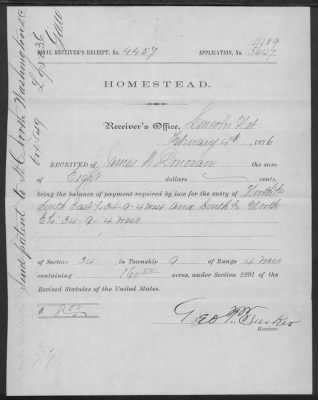 FINAL RECEIVER'S RECEIPT, No. 4457 APPLICATION, No.
HOMESTEAD.
Receiver's Office, Lincoln
February 4th, 1876
RECEIVED of James W Donovan the sum
of Eight dollars cents,
being the balance of payment required by law for the entry of North ½
South East ¼ 34-9-4 West and South ½ North
E ¼ 34-9-4 West
of Section 34 in Township 9 of Range 4 West
containing 160 acres, under Section 2291 of the
Revised Statutes of the United States.
$ 8.00
Geo W. Tucker
Receiver.
Send patent to North Washington